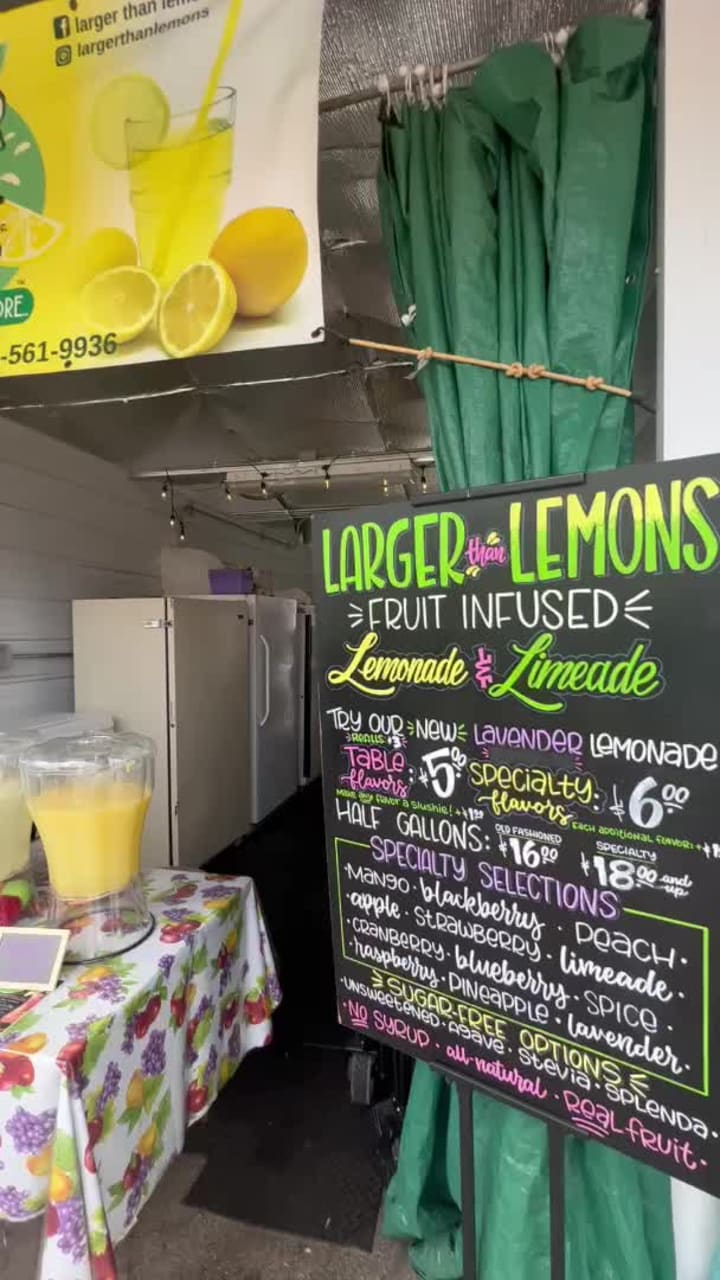 larger than lem
largerthanlemons
ORE
-561-9936
LARGER than LEMONS
FRUIT INFUSED
Lemonade & Limeade
TRY OUR NEW LAVENDER LEMONADE
REFILLS $3
TABLE flavors: $5.00 SPECIALTY flavors: $6.00
MAKE any FLAVOR A SLUSHIE! +$1.00
EACH ADDITIONAL FLAVOR: +$1
HALF GALLONS: OLD FASHIONED $16.00 SPECIALTY $18.00 and up
SPECIALTY SELECTIONS
·MANGO · blackberry · PEACH·
·apple · STRAWBERRY · limeade·
·CRANBERRY · blueberry · SPICE·
·raspberry · PINEAPPLE · lavender·
SUGAR-FREE OPTIONS
·UNSWEETENED · AGAVE · STEVIA · SPLENDA·
·NO SYRUP · all-natural · REAL fruit·